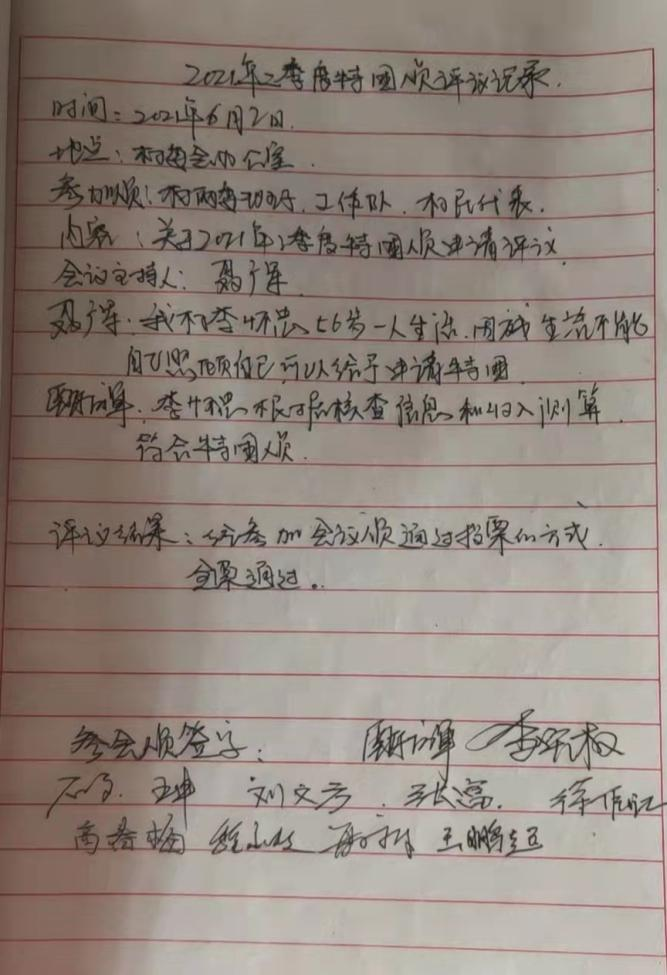 2021年2季度特困人员评议记录.
时间：2021年6月2日.
地点：村委会办公室.
参加人员：村两委班子、工作队、村民代表.
内容：关于2021年2季度特困人员申请评议.
会议主持人：聂广军.
聂广军：我村李怀忠56岁一人生活、因残生活不能
自己照顾自己可以给予申请特困.
李怀忠根据核查信息和收入测算.
符合特困人员.
评议结果：经参加会议人员通过投票的方式.
全票通过。
参会人员签字：
王坤 刘文 张富.
高春梅 王鹏超